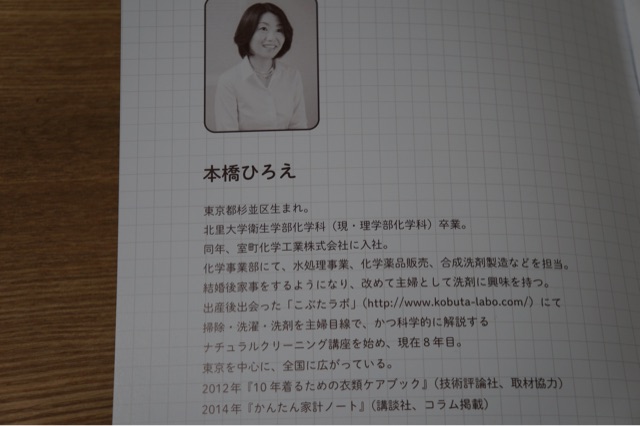 本橋ひろえ
東京都杉並区生まれ。
北里大学衛生学部化学科（現・理学部化学科）卒業。
同年、室町化学工業株式会社に入社。
化学事業部にて、水処理事業、化学薬品販売、合成洗剤製造などを担当。
結婚後家事をするようになり、改めて主婦として洗剤に興味を持つ。
出産後出会った「こぶたラボ」（http://www.kobuta-labo.com/）にて
掃除・洗濯・洗剤を主婦目線で、かつ科学的に解説する
ナチュラルクリーニング講座を始め、現在８年目。
東京を中心に、全国に広がっている。
2012年『10年着るための衣類ケアブック』（技術評論社、取材協力）
2014年『かんたん家計ノート』（講談社、コラム掲載）